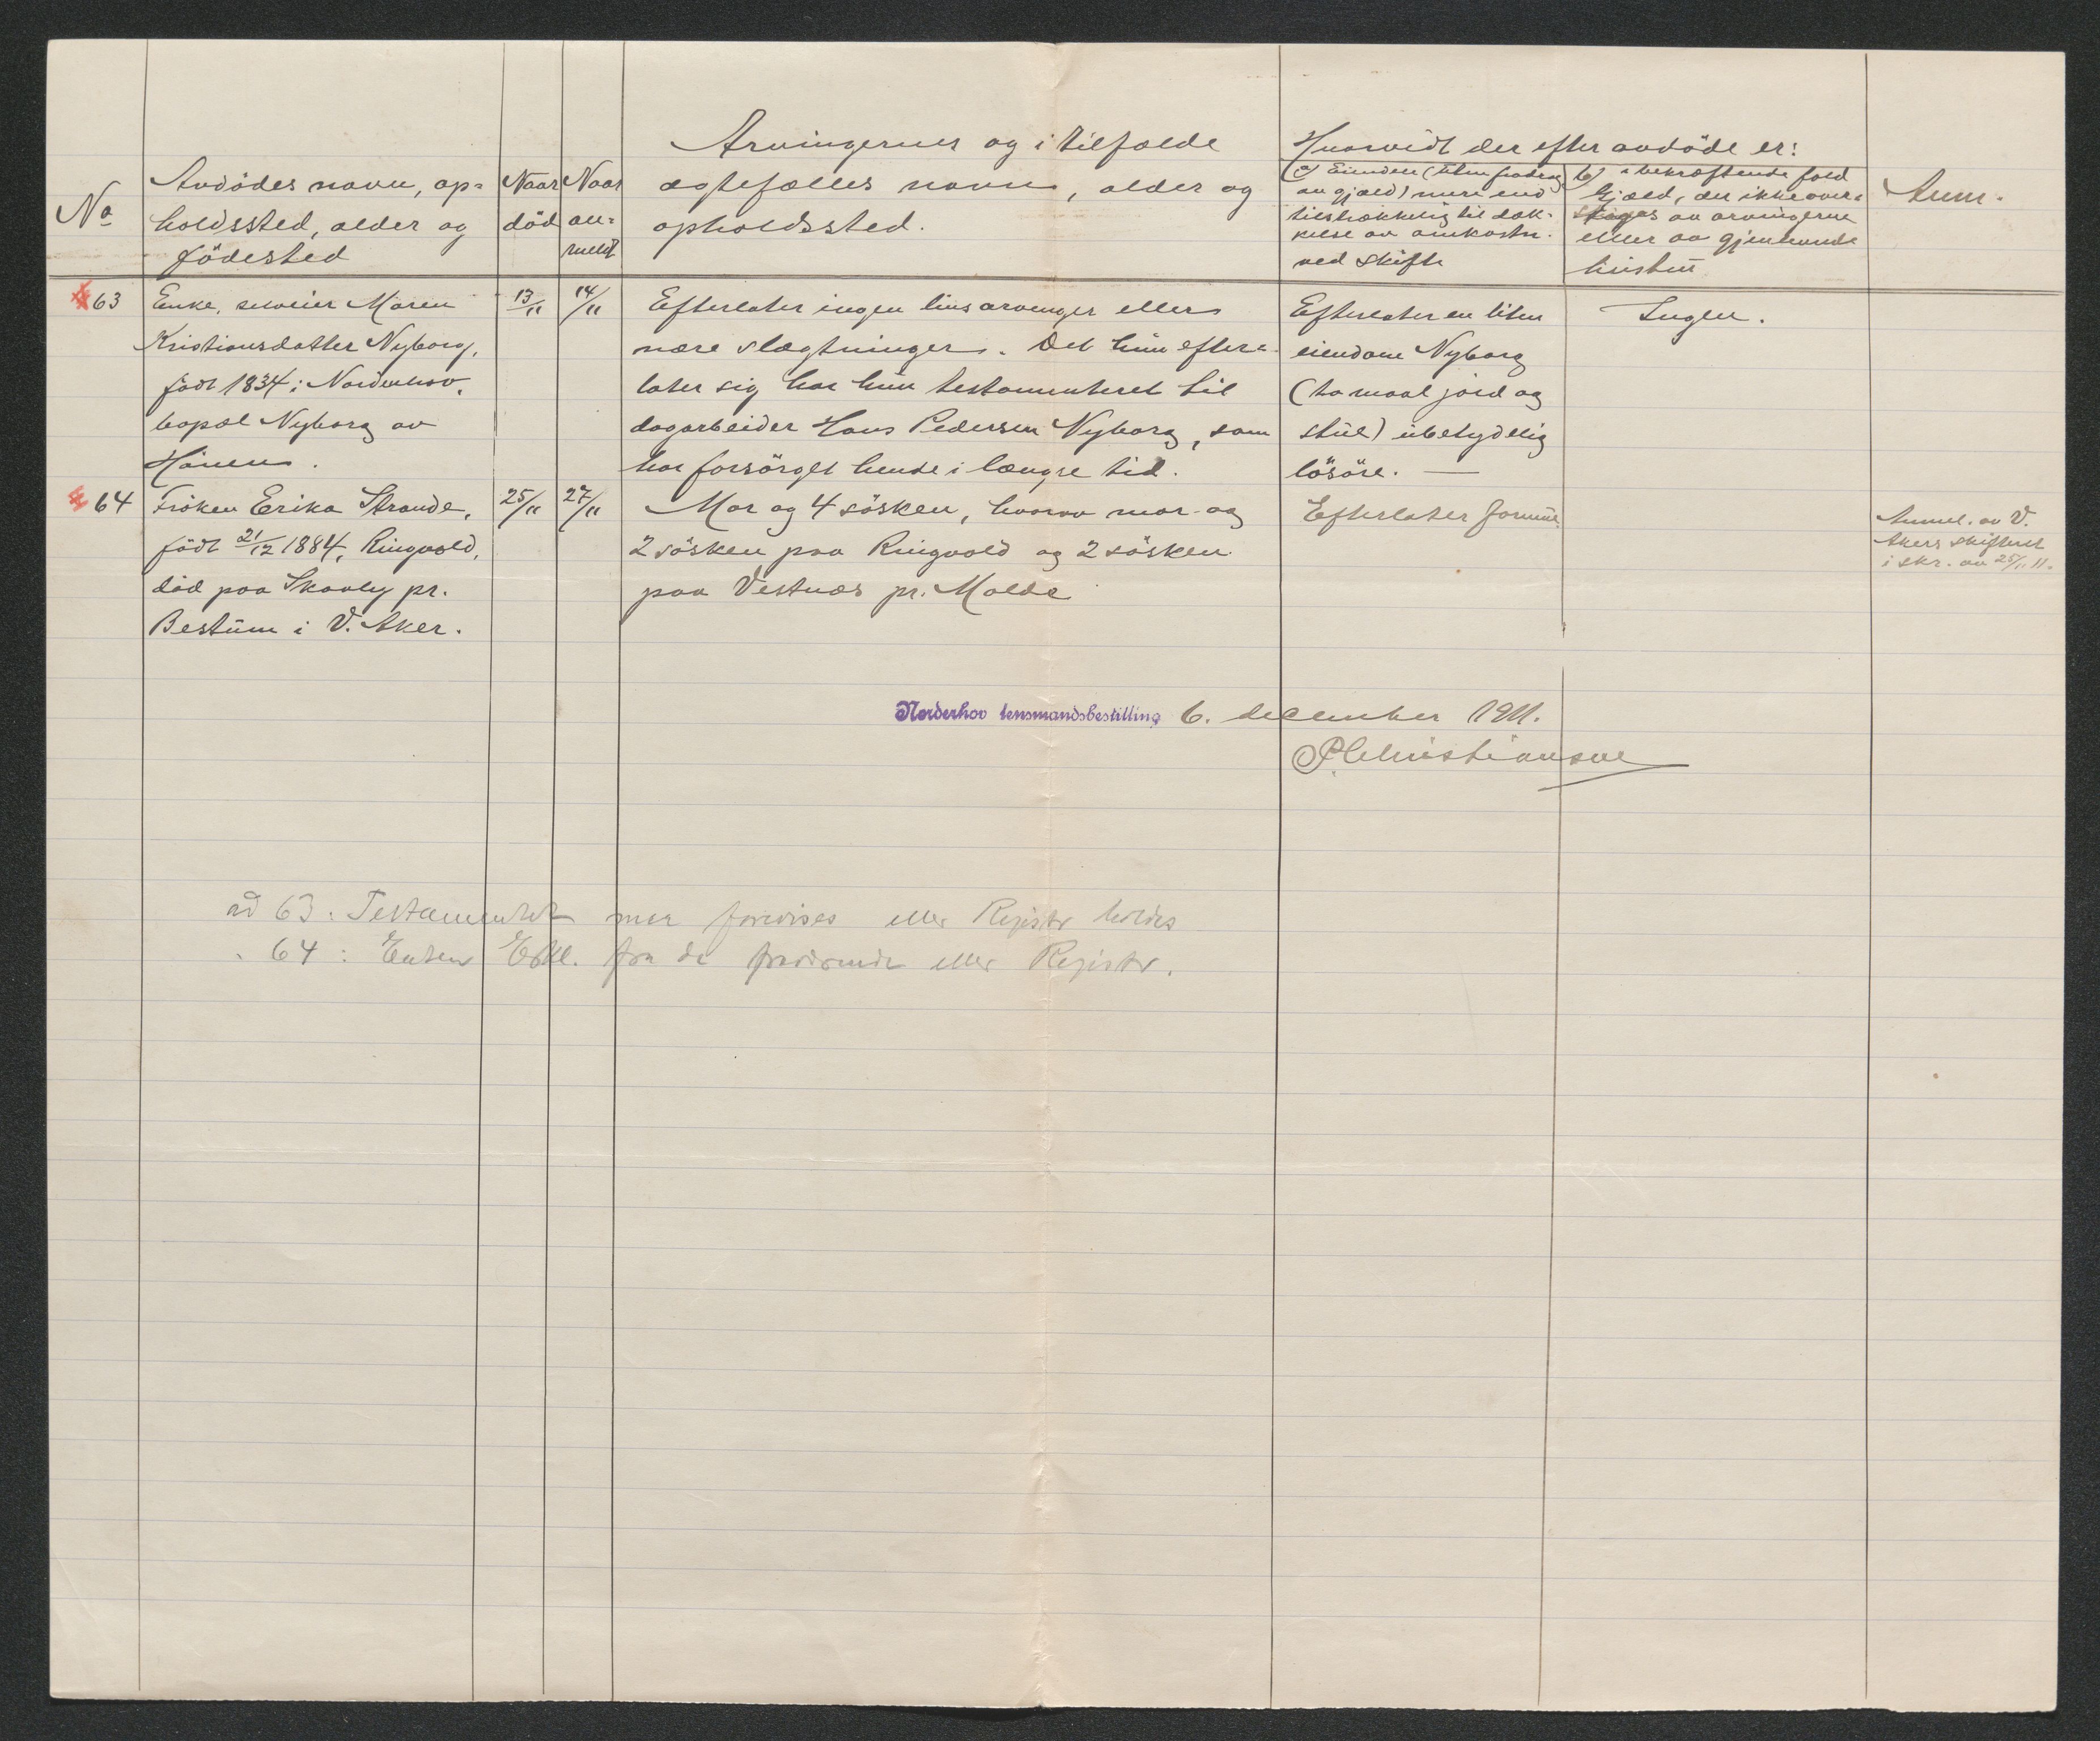 No
Avdödes navn, op=
holdssted, alder og
födested
Naar
död
Naar
an=
meldt
Arvingernes og i tilfælde
ægtefælles navn, alder og
opholdssted.
Hvorvidt der efter avdöde er:
a) Eiendele (uten fradrag
av gjæld) mere end
tilstrækkelig til dæk-
kelse av omkostn.
ved skifte
b) i bekræftende fald
Gjæld, der ikke over=
tages av arvingerne
eller av gjenlevende
hustru
Anm.
63
Enke, selveier Maren
Kristiansdatter Nyborg,
född 1834 i Norderhov.
bopæl Nyborg av
Hönen.
13/11
14/11
Efterlater ingen livsarvinger eller
nære slægtninger. Det hun efter=
later sig har hun testamenteret til
dagarbeider Hans Pedersen Nyborg, som
har forsörget hende i længre tid.
Efterlater en liten
eiendom Nyborg
(to maal jord og
stue) ubetydelig
lösöre. —
Ingen.
64
Fröken Erika Strande,
född 21/12 1884, Ringvold,
död paa Skovly pr.
Bestum i V. Aker.
25/11
27/11
Mor og 4 sösken, hvorav mor og
2 sösken paa Ringvold og 2 sösken
paa Vestnes pr. Molde
Efterlater formue.
Anmel. av V.
Akers skifteret
i skr. av 25/11 11.
Norderhov lensmandsbestilling 6. december 1911.
P Christiansen
ad 63: Testamentet maa forevises eller Registr holdes
" 64: Enten Erkl. fra de eller Registr.